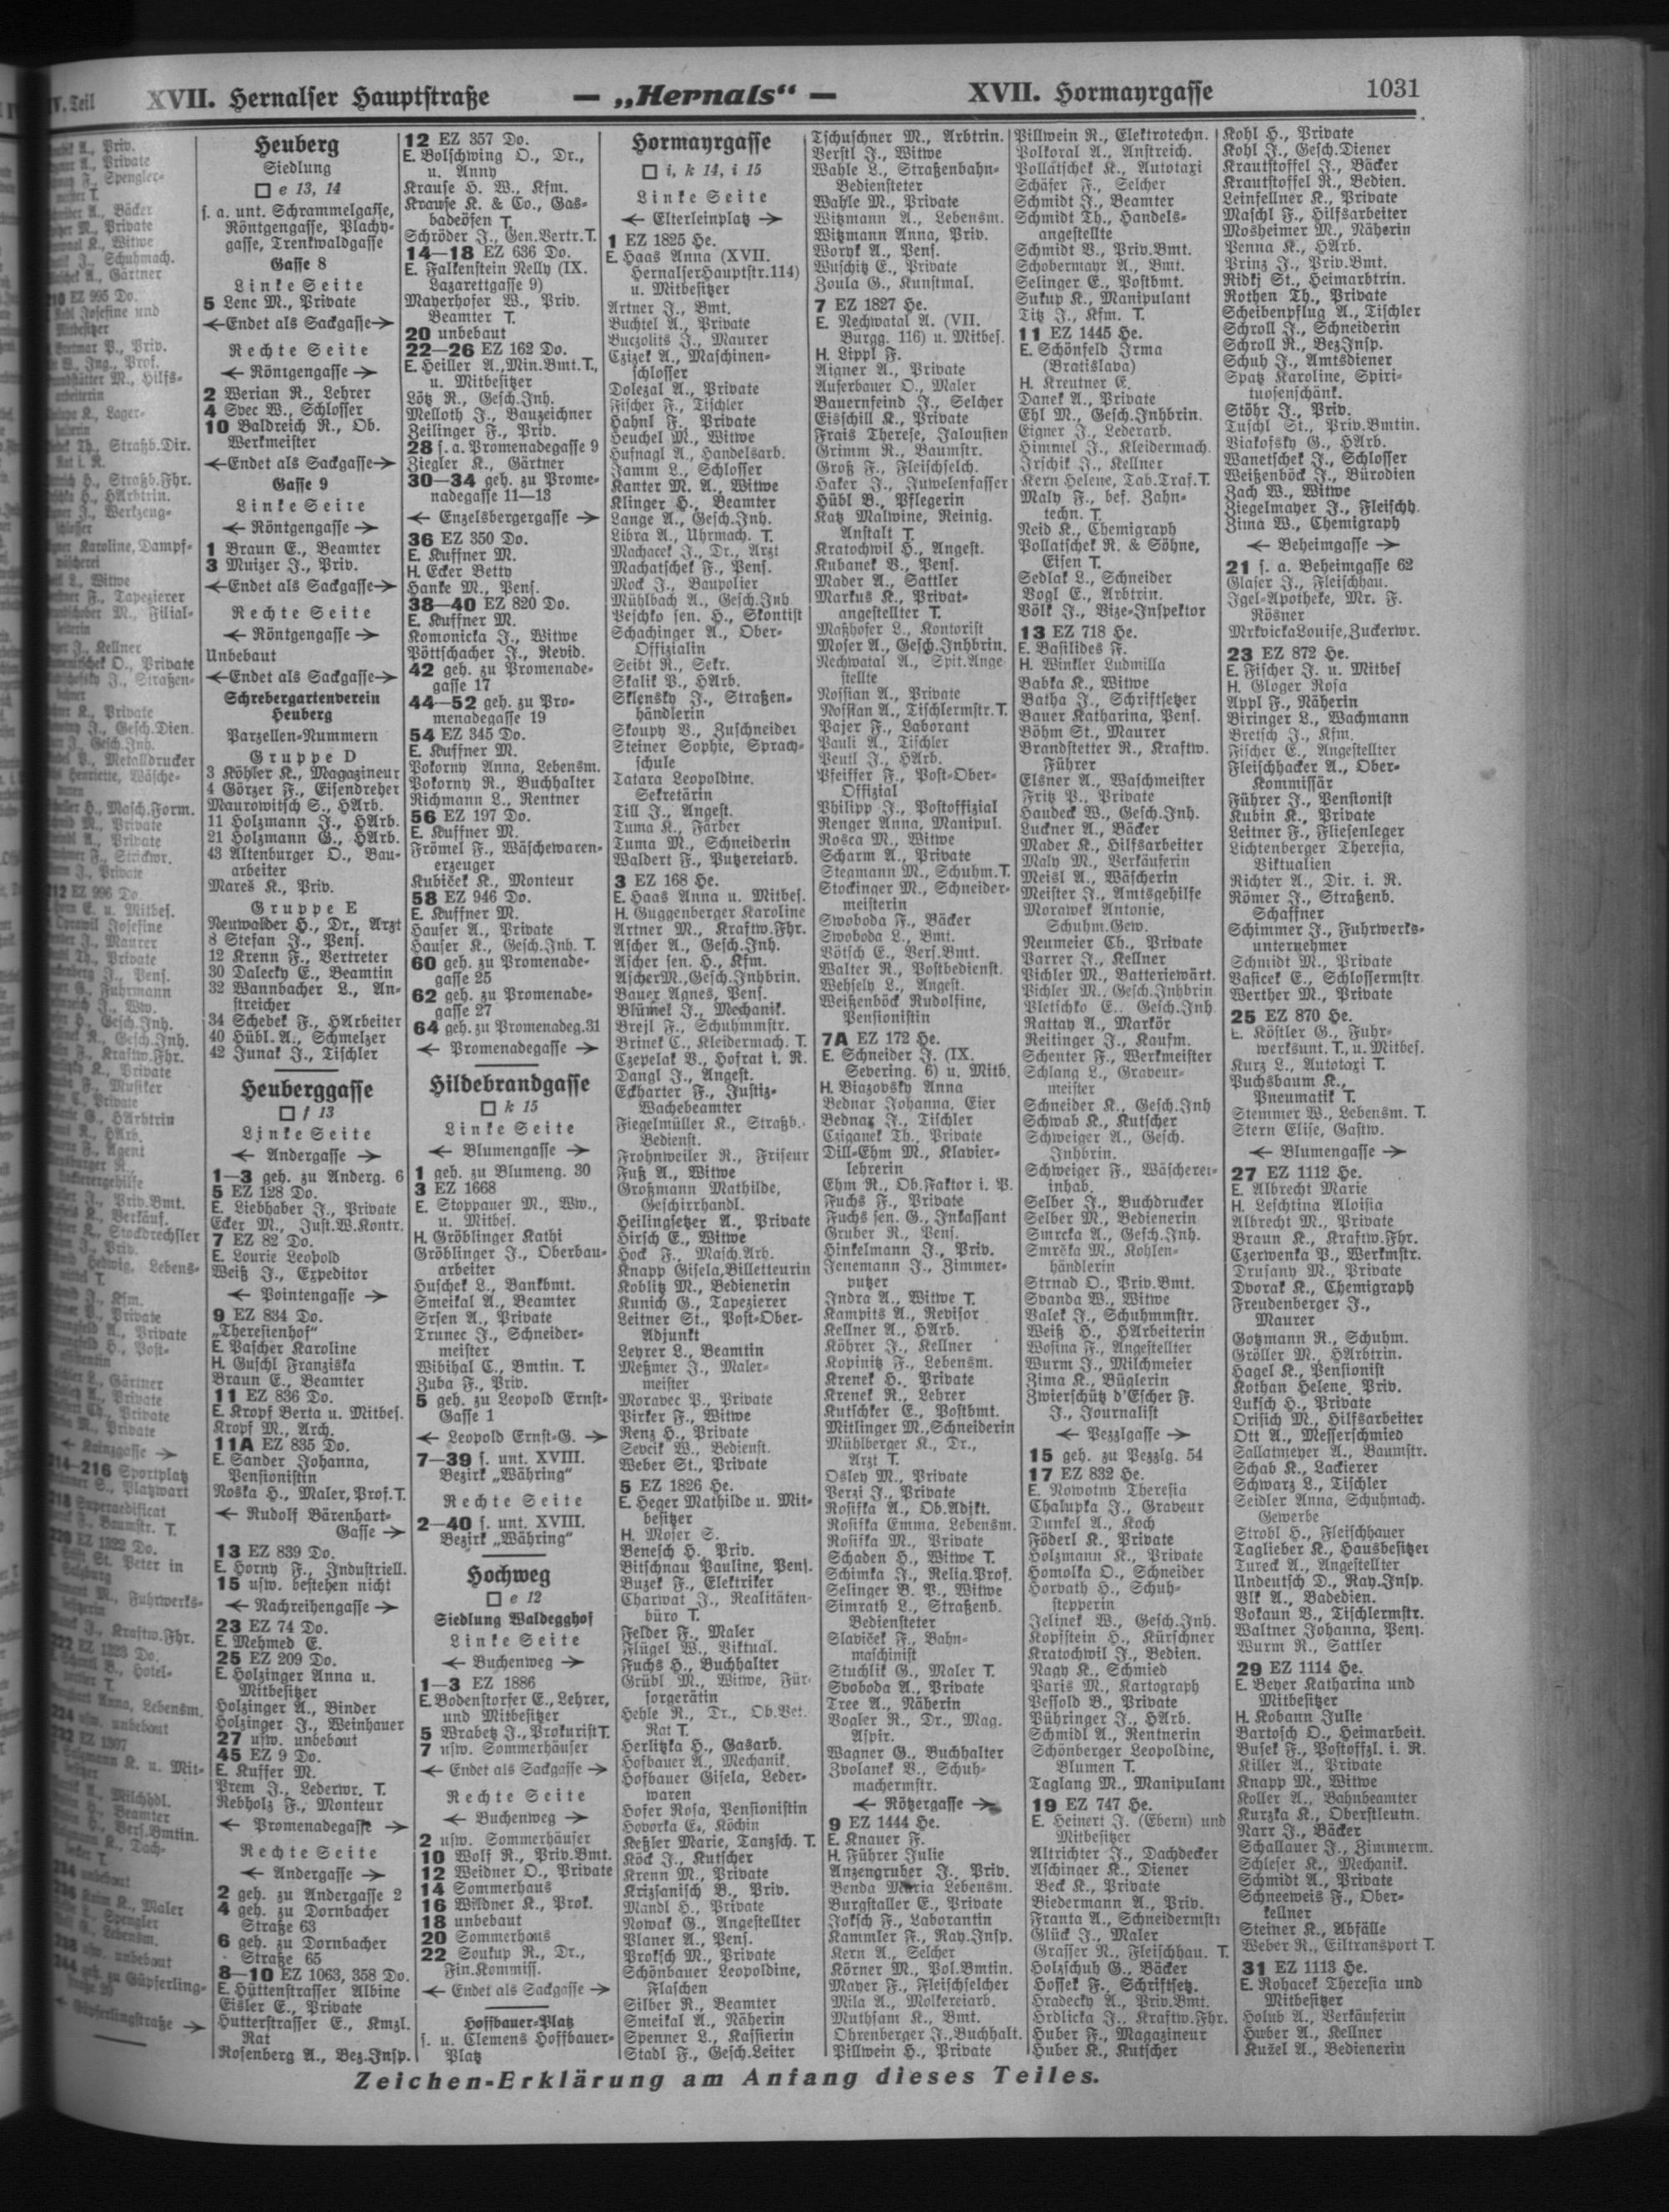 IV. Teil
XVII. Hernalser Hauptstraße
— „Hernals“ —
XVII. Hormayrgasse
1031
Heuberg
Siedlung
□ e 13, 14
s. a. unt. Schrammelgasse,
Röntgengasse, Plachy-
gasse, Trenkwaldgasse
Gasse 8
Linke Seite
5 Lenc M., Private
←Endet als Sackgasse→
Rechte Seite
← Röntgengasse →
2 Werian R., Lehrer
4 Svec W., Schlosser
10 Baldreich R., Ob.
Werkmeister
←Endet als Sackgasse→
Gasse 9
Linke Seite
← Röntgengasse →
1 Braun E., Beamter
3 Muizer J., Priv.
←Endet als Sackgasse→
Rechte Seite
← Röntgengasse →
Unbebaut
←Endet als Sackgasse→
Schrebergartenverein
Heuberg
Parzellen-Nummern
Gruppe D
3 Köhler K., Magazineur
4 Görzer F., Eisendreher
Maurowitsch S., HArb.
11 Holzmann J., HArb.
21 Holzmann G., HArb.
43 Altenburger O., Bau-
arbeiter
Mareš K., Priv.
Gruppe E
Neuwalder H., Dr., Arzt
8 Stefan J., Pens.
12 Krenn F., Vertreter
30 Dalecky E., Beamtin
32 Wannbacher L., An-
streicher
34 Schebek F., HArbeiter
40 Hübl A., Schmelzer
42 Junak J., Tischler
Heuberggasse
□ f 13
Linke Seite
← Andergasse →
1—3 geh. zu Anderg. 6
5 EZ 128 Do.
E. Liebhaber J., Private
Ecker M., Just.W.Kontr.
7 EZ 82 Do.
E. Lourie Leopold
Weiß J., Expeditor
← Pointengasse →
9 EZ 834 Do.
„Theresienhof“
E. Pascher Karoline
H. Guschl Franziska
Braun E., Beamter
11 EZ 836 Do.
E. Kropf Berta u. Mitbes.
Kropf M., Arch.
11A EZ 835 Do.
E. Sander Johanna,
Pensionistin
Noska H., Maler, Prof. T.
← Rudolf Bärenhart-
Gasse →
13 EZ 839 Do.
E. Horny F., Industriell.
15 usw. bestehen nicht
← Nachreihengasse →
23 EZ 74 Do.
E. Mehmed E.
25 EZ 209 Do.
E. Holzinger Anna u.
Mitbesitzer
Holzinger A., Binder
Holzinger J., Weinhauer
27 usw. unbebaut
45 EZ 9 Do.
E. Kuffer M.
Prem J., Lederwr. T.
Rebholz F., Monteur
← Promenadegasse →
Rechte Seite
← Andergasse →
2 geh. zu Andergasse 2
4 geh. zu Dornbacher
Straße 63
6 geh. zu Dornbacher
Straße 65
8—10 EZ 1063, 358 Do.
E. Hüttenstrasser Albine
Eisler E., Private
Hutterstrasser E., Kmzl.
Rat
Rosenberg A., Bez.Insp.
12 EZ 357 Do.
E. Bolschwing O., Dr.,
u. Anny
Krause H. W., Kfm.
Krause K. & Co., Gas-
badeöfen T.
Schröder J., Gen.Vertr.T.
14—18 EZ 636 Do.
E. Falkenstein Nelly (IX.
Lazarettgasse 9)
Mayerhofer W., Priv.
Beamter T.
20 unbebaut
22—26 EZ 162 Do.
E. Heiller A.,Min.Bmt.T.,
u. Mitbesitzer
Lötz R., Gesch.Inh.
Melloth J., Bauzeichner
Zeilinger F., Priv.
28 s. a. Promenadegasse 9
Ziegler K., Gärtner
30—34 geh. zu Prome-
nadegasse 11—13
← Enzelsbergergasse →
36 EZ 350 Do.
E. Kuffner M.
H. Ecker Betty
Hanke M., Pens.
38—40 EZ 820 Do.
E. Kuffner M.
Komonicka J., Witwe
Pöttschacher J., Revid.
42 geh. zu Promenade-
gasse 17
44—52 geh. zu Pro-
menadegasse 19
54 EZ 345 Do.
E. Kuffner M.
Pokorny Anna, Lebensm.
Pokorny R., Buchhalter
Richmann L., Rentner
56 EZ 197 Do.
E. Kuffner M.
Frömel F., Wäschewaren-
erzeuger
Kubiček K., Monteur
58 EZ 946 Do.
E. Kuffner M.
Hauser A., Private
Hauser K., Gesch.Inh. T.
60 geh. zu Promenade-
gasse 25
62 geh. zu Promenade-
gasse 27
64 geh. zu Promenadeg.31
← Promenadegasse →
Hildebrandgasse
□ k 15
Linke Seite
← Blumengasse →
1 geh. zu Blumeng. 30
3 EZ 1668
E. Stoppauer M., Ww.,
u. Mitbes.
H. Gröblinger Kathi
Gröblinger J., Oberbau-
arbeiter
Huschek L., Bankbmt.
Smeikal A., Beamter
Srsen A., Private
Trunec J., Schneider-
meister
Wibihal C., Bmtin. T.
Zuba F., Priv.
5 geh. zu Leopold Ernst-
Gasse 1
← Leopold Ernst-G. →
7—39 s. unt. XVIII.
Bezirk „Währing“
Rechte Seite
2—40 s. unt. XVIII.
Bezirk „Währing“
Hochweg
□ e 12
Siedlung Waldegghof
Linke Seite
← Buchenweg →
1—3 EZ 1886
E. Bodenstorfer E., Lehrer,
und Mitbesitzer
5 Wrabetz J., Prokurist T.
7 usw. Sommerhäuser
← Endet als Sackgasse →
Rechte Seite
← Buchenweg →
2 usw. Sommerhäuser
10 Wolf R., Priv.Bmt.
12 Weidner O., Private
14 Sommerhaus
16 Wildner K., Prok.
18 unbebaut
20 Sommerhaus
22 Soukup R., Dr.,
Fin.Kommiss.
← Endet als Sackgasse →
Hoffbauer-Platz
s. u. Clemens Hoffbauer-
Platz
Hormayrgasse
□ i, k 14, i 15
Linke Seite
← Elterleinplatz →
1 EZ 1825 He.
E. Haas Anna (XVII.
HernalserHauptstr.114)
u. Mitbesitzer
Artner J., Bmt.
Buchtel A., Private
Buczolits J., Maurer
Czizek A., Maschinen-
schlosser
Dolezal A., Private
Fischer F., Tischler
Hahnl F., Private
Heuchel M., Witwe
Hufnagl A., Handelsarb.
Jamm L., Schlosser
Kanter M. A., Witwe
Klinger H., Beamter
Lange A., Gesch.Inh.
Libra A., Uhrmach. T.
Machacek J., Dr., Arzt
Machatschek F., Pens.
Mock J., Baupolier
Mühlbach A., Gesch.Inh.
Peschko sen. H., Skontist
Schachinger A., Ober-
Offizialin
Seibt R., Sekr.
Skalik P., HArb.
Sklensky J., Straßen-
händlerin
Skoupy V., Zuschneider
Steiner Sophie, Sprach-
schule
Tatara Leopoldine,
Sekretärin
Till J., Angest.
Tuma K., Färber
Tuma M., Schneiderin
Waldert F., Putzereiarb.
3 EZ 168 He.
E. Haas Anna u. Mitbes.
H. Guggenberger Karoline
Artner M., Kraftw.Fhr.
Ascher A., Gesch.Inh.
Ascher sen. H., Kfm.
AscherM.,Gesch.Inhbrin.
Bauer Agnes, Pens.
Blümel J., Mechanik.
Brejl F., Schuhmmstr.
Brinek C., Kleidermach. T.
Czepelak V., Hofrat i. R.
Dangl J., Angest.
Eckharter F., Justiz-
Wachebeamter
Fiegelmüller K., Straßb.-
Bedienst.
Frohnweiler R., Friseur
Fuß A., Witwe
Großmann Mathilde,
Geschirrhandl.
Heilingsetzer A., Private
Hirsch E., Witwe
Hock F., Masch.Arb.
Knapp Gisela,Billetteurin
Koblitz M., Bedienerin
Kunich G., Tapezierer
Leitner St., Post-Ober-
Adjunkt
Leyrer L., Beamtin
Meßmer J., Maler-
meister
Moravec P., Private
Pirker F., Witwe
Renz H., Private
Sevcik W., Bedienst.
Weber St., Private
5 EZ 1826 He.
E. Heger Mathilde u. Mit-
besitzer
H. Moser S.
Benesch H., Priv.
Bitschnau Pauline, Pens.
Buzek F., Elektriker
Charwat J., Realitäten-
büro T.
Felder F., Maler
Flügel W., Viktual.
Fuchs H., Buchhalter
Grübl M., Witwe, Für-
sorgerätin
Hehle R., Dr., Ob.Vet.
Rat T.
Herlitzka H., Gasarb.
Hofbauer A., Mechanik.
Hofbauer Gisela, Leder-
waren
Hofer Rosa, Pensionistin
Hovorka E., Köchin
Keßler Marie, Tanzsch. T.
Köck J., Kutscher
Krenn M., Private
Krizsanisch B., Priv.
Mandl H., Private
Nowak G., Angestellter
Planer A., Pens.
Proksch M., Private
Schönbauer Leopoldine,
Flaschen
Silber R., Beamter
Smeikal A., Näherin
Spenner L., Kassierin
Stadl F., Gesch.Leiter
Tschuschner M., Arbtrin.
Verstl J., Witwe
Wahle L., Straßenbahn-
Bediensteter
Wahle M., Private
Witzmann A., Lebensm.
Witzmann Anna, Priv.
Woryk A., Pens.
Wuschitz E., Private
Zoula G., Kunstmal.
7 EZ 1827 He.
E. Nechwatal A. (VII.
Burgg. 116) u. Mitbes.
H. Lippl F.
Aigner A., Private
Auferbauer O., Maler
Bauernfeind J., Selcher
Eischill K., Private
Frais Therese, Jalousien
Grimm R., Baumstr.
Groß F., Fleischselch.
Haker J., Juwelenfasser
Hübl B., Pflegerin
Katz Malwine, Reinig.
Anstalt T.
Kratochwil H., Angest.
Kubanek B., Pens.
Mader A., Sattler
Markus K., Privat-
angestellter T.
Maßhofer L., Kontorist
Moser A., Gesch.Inhbrin.
Nechwatal A., Spit.Ange
stellte
Nossian A., Private
Nossian A., Tischlermstr. T.
Pajer F., Laborant
Pauli A., Tischler
Peutl J., HArb.
Pfeiffer F., Post-Ober-
Offizial
Philipp J., Postoffizial
Renger Anna, Manipul.
Rosca M., Witwe
Scharm A., Private
Stegmann M., Schuhm. T.
Stockinger M., Schneider-
meisterin
Swoboda F., Bäcker
Swoboda L., Bmt.
Vötsch E., Vers.Bmt.
Walter R., Postbedienst.
Wehsely L., Angest.
Weißenböck Rudolfine,
Pensionistin
7A EZ 172 He.
E. Schneider J. (IX.
Severing. 6) u. Mitb.
H. Biazovsky Anna
Bednar Johanna, Eier
Bednar J., Tischler
Cziganek Th., Private
Dill-Ehm M., Klavier-
lehrerin
Ehm R., Ob.Faktor i. P.
Fuchs F., Private
Fuchs sen. G., Inkassant
Gruber R., Pens.
Hinkelmann J., Priv.
Jenemann J., Zimmer-
putzer
Indra A., Witwe T.
Kampits A., Revisor
Kellner A., HArb.
Köhrer J., Kellner
Kopinitz F., Lebensm.
Krenek H., Private
Krenek R., Lehrer
Kutschker E., Postbmt.
Mitlinger M.,Schneiderin
Mühlberger K., Dr.,
Arzt T.
Osley M., Private
Perzi J., Private
Rosiska A., Ob.Adjkt.
Rosiska Emma, Lebensm.
Rosiska M., Private
Schaden H., Witwe T.
Schimka J., Relig.Prof.
Selinger B. P., Witwe
Simrath L., Straßenb.
Bediensteter
Slaviček F., Bahn-
maschinist
Stuchlik G., Maler T.
Svoboda A., Private
Tree A., Näherin
Vogler R., Dr., Mag.
Aspir.
Wagner G., Buchhalter
Zvolanek V., Schuh-
machermstr.
← Rötzergasse →
9 EZ 1444 He.
E. Knauer F.
H. Führer Julie
Anzengruber J., Priv.
Benda Maria Lebensm.
Burgstaller E., Private
Joksch F., Laborantin
Kammler F., Ray.Insp.
Kern A., Selcher
Körner M., Pol.Bmtin.
Mayer F., Fleischselcher
Mila A., Molkereiarb.
Muthsam K., Bmt.
Ohrenberger J.,Buchhalt.
Pillwein H., Private
Pillwein R., Elektrotechn.
Polkoral A., Anstreich.
Pollatschek K., Autotaxi
Schäfer F., Selcher
Schmidt J., Beamter
Schmidt Th., Handels-
angestellte
Schmidt V., Priv.Bmt.
Schobermayr A., Bmt.
Selinger E., Postbmt.
Sukup K., Manipulant
Titz J., Kfm. T.
11 EZ 1445 He.
E. Schönfeld Irma
(Bratislava)
H. Kreutner E.
Danek A., Private
Ehl M., Gesch.Inhbrin.
Eigner J., Lederarb.
Himmel J., Kleidermach.
Irschik J., Kellner
Kern Helene, Tab.Traf. T.
Maly F., bef. Zahn-
techn. T.
Neid K., Chemigraph
Pollatschek R. & Söhne,
Eisen T.
Sedlak L., Schneider
Vogl E., Arbtrin.
Völk J., Vize-Inspektor
13 EZ 718 He.
E. Basilides F.
H. Winkler Ludmilla
Babka K., Witwe
Batha J., Schriftsetzer
Bauer Katharina, Pens.
Böhm St., Maurer
Brandstetter R., Kraftw.
Führer
Elsner A., Waschmeister
Fritz P., Private
Haudeck W., Gesch.Inh.
Luckner A., Bäcker
Mader K., Hilfsarbeiter
Maly M., Verkäuferin
Meisl A., Wäscherin
Meister J., Amtsgehilfe
Morawek Antonie,
Schuhm.Gew.
Neumeier Ch., Private
Parrer J., Kellner
Pichler M., Batteriewärt.
Pichler M., Gesch.Inhbrin
Pletschko E., Gesch.Inh.
Rattay A., Markör
Reitinger J., Kaufm.
Schenter F., Werkmeister
Schlang L., Graveur-
meister
Schneider K., Gesch.Inh
Schwab K., Kutscher
Schweiger A., Gesch.
Inhbrin.
Schweiger F., Wäscherei-
inhab.
Selber J., Buchdrucker
Selber M., Bedienerin
Smrcka A., Gesch.Inh.
Smrčka M., Kohlen-
händlerin
Strnad O., Priv.Bmt.
Svanda W., Witwe
Valek J., Schuhmmstr.
Weiß H., HArbeiterin
Wosina F., Angestellter
Wurm J., Milchmeier
Zima K., Büglerin
Zwierschütz d'Escher F.
J., Journalist
← Pezzlgasse →
15 geh. zu Pezzlg. 54
17 EZ 832 He.
E. Nowotny Theresia
Chalupka J., Graveur
Dunkel A., Koch
Föderl K., Private
Holzmann K., Private
Homolka O., Schneider
Horvath H., Schuh-
stepperin
Jelinek W., Gesch.Inh.
Kopfstein H., Kürschner
Kratochwil J., Bedien.
Nagy K., Schmied
Paris M., Kartograph
Pessold B., Private
Pühringer J., HArb.
Schmidl A., Rentnerin
Schönberger Leopoldine,
Blumen T.
Taglang M., Manipulant
19 EZ 747 He.
E. Heinert J. (Ebern) und
Mitbesitzer
Altrichter J., Dachdecker
Aschinger K., Diener
Beck K., Private
Biedermann A., Priv.
Franta A., Schneidermstr
Glück J., Maler
Grasser N., Fleischhau. T.
Holzschuh G., Bäcker
Hossek F., Schriftsetz.
Hradecky A., Priv.Bmt.
Hrdlicka J., Kraftw.Fhr.
Huber F., Magazineur
Huber K., Kutscher
Kohl H., Private
Kohl J., Gesch.Diener
Krautstoffel J., Bäcker
Krautstoffel R., Bedien.
Leinfellner K., Private
Maschl F., Hilfsarbeiter
Mosheimer M., Näherin
Penna K., HArb.
Prinz J., Priv.Bmt.
Ridkj St., Heimarbtrin.
Rothen Th., Private
Scheibenpflug A., Tischler
Schroll J., Schneiderin
Schroll R., BezInsp.
Schuh J., Amtsdiener
Spatz Karoline, Spiri-
tuosenschänk.
Stöhr J., Priv.
Tuschl St., Priv.Bmtin.
Viakofsky G., HArb.
Wanetschek J., Schlosser
Weißenböck J., Bürodien
Zach W., Witwe
Ziegelmayer J., Fleischh.
Zima W., Chemigraph
← Beheimgasse →
21 s. a. Beheimgasse 62
Glaser J., Fleischhau.
Igel-Apotheke, Mr. F.
Rösner
MrkwickaLouise,Zuckerwr.
23 EZ 872 He.
E. Fischer J. u. Mitbes
H. Gloger Rosa
Appl F., Näherin
Biringer L., Wachmann
Bretsch J., Kfm.
Fischer E., Angestellter
Fleischhacker A., Ober-
Kommissär
Führer J., Pensionist
Kubin K., Private
Leitner F., Fliesenleger
Lichtenberger Theresia,
Viktualien
Richter A., Dir. i. R.
Römer J., Straßenb.
Schaffner
Schimmer J., Fuhrwerks-
unternehmer
Schmidt M., Private
Vasicek E., Schlossermstr.
Werther M., Private
25 EZ 870 He.
E. Köstler G., Fuhr-
werksunt. T., u. Mitbes.
Kurz L., Autotaxi T.
Puchsbaum K.,
Pneumatik T.
Stemmer W., Lebensm. T.
Stern Elise, Gastw.
← Blumengasse →
27 EZ 1112 He.
E. Albrecht Marie
H. Leschtina Aloisia
Albrecht M., Private
Braun K., Kraftw.Fhr.
Czerwenka P., Werkmstr.
Drusany M., Private
Dvorak K., Chemigraph
Freudenberger J.,
Maurer
Gotzmann R., Schuhm.
Gröller M., HArbtrin.
Hagel K., Pensionist
Kothan Helene, Priv.
Luksch H., Private
Orisich M., Hilfsarbeiter
Ott A., Messerschmied
Sallatmeyer A., Baumstr.
Schab K., Lackierer
Schwarz L., Tischler
Seidler Anna, Schuhmach.
Gewerbe
Strobl H., Fleischhauer
Taglieber K., Hausbesitzer
Tureck A., Angestellter
Undeutsch D., Ray.Insp.
Vlk A., Badedien.
Vokaun V., Tischlermstr.
Waltner Johanna, Pens.
Wurm R., Sattler
29 EZ 1114 He.
E. Beyer Katharina und
Mitbesitzer
H. Kobann Julie
Bartosch O., Heimarbeit.
Busek F., Postoffzl. i. R.
Killer A., Private
Knapp M., Witwe
Koller A., Bahnbeamter
Kurzka K., Oberstleutn.
Narr J., Bäcker
Schallauer J., Zimmerm.
Schleser K., Mechanik.
Schmidt A., Private
Schneeweis F., Ober-
kellner
Steiner K., Abfälle
Weber R., Eiltransport T.
31 EZ 1113 He.
E. Rohacek Theresia und
Mitbesitzer
Holub A., Verkäuferin
Huber A., Kellner
Kužel A., Bedienerin
Zeichen-Erklärung am Anfang dieses Teiles.